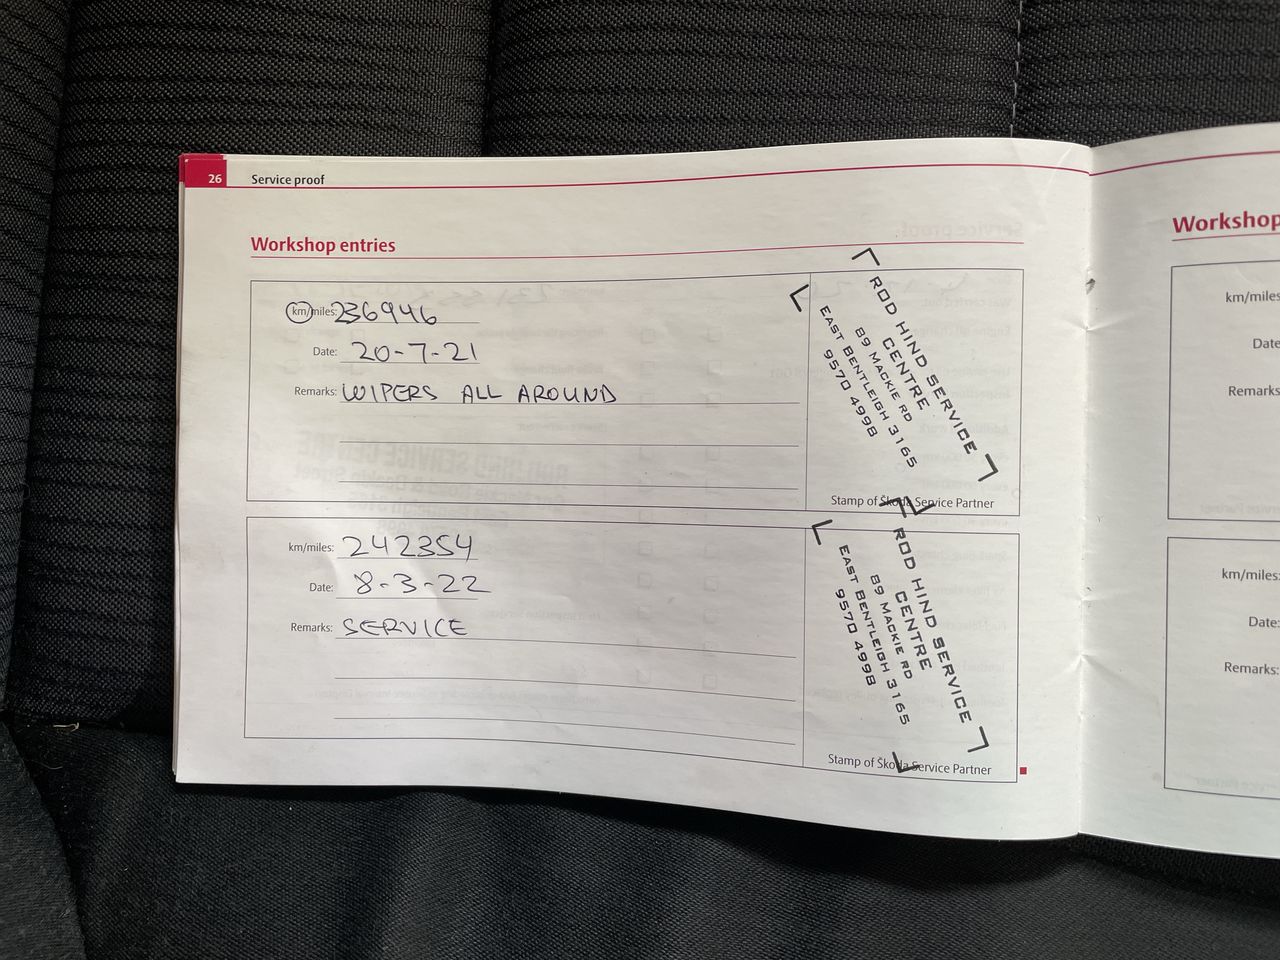 26 Service proof
Workshop entries
km/miles: 236946
Date: 20-7-21
Remarks: WIPERS ALL AROUND
ROD HIND SERVICE
CENTRE
89 MACKIE RD
EAST BENTLEIGH 3165
9570 4998
Stamp of Škoda Service Partner
km/miles: 242354
Date: 8-3-22
Remarks: SERVICE
ROD HIND SERVICE
CENTRE
89 MACKIE RD
EAST BENTLEIGH 3165
9570 4998
Stamp of Škoda Service Partner
Workshop
km/miles:
Date
Remarks:
km/miles:
Date:
Remarks: